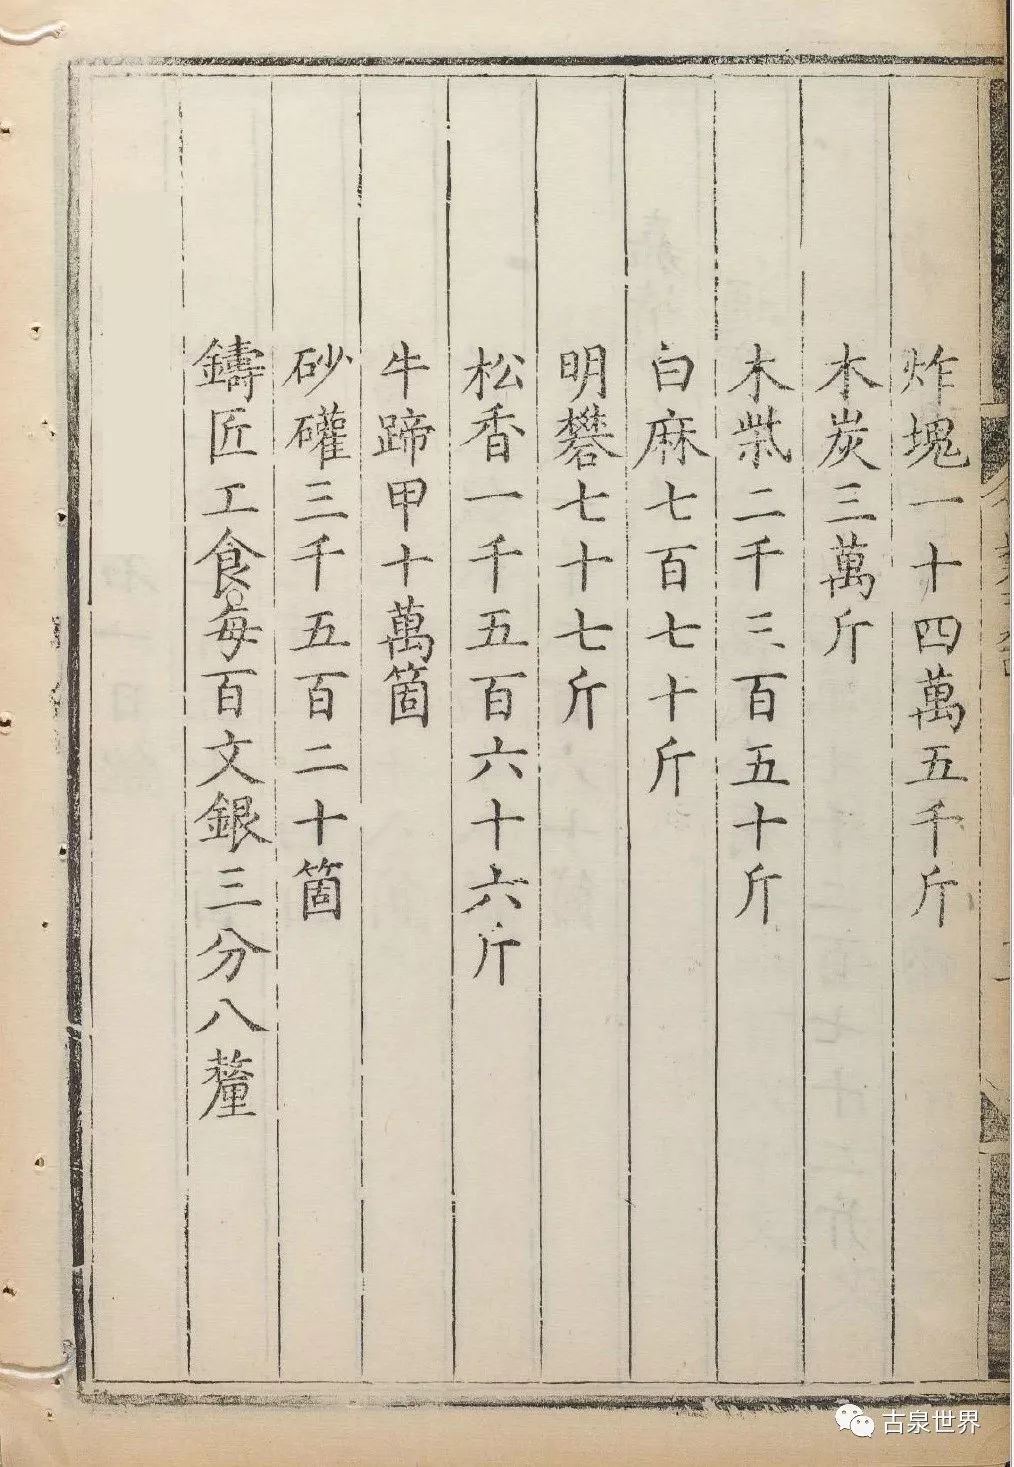 炸塊一十四萬五千斤
木炭三萬斤
木柴二千三百五十斤
白麻七百七十斤
明礬七十七斤
松香一千五百六十六斤
牛蹄甲十萬箇
砂罐三千五百二十箇
鑄匠工食每百文銀三分八釐
古泉世界